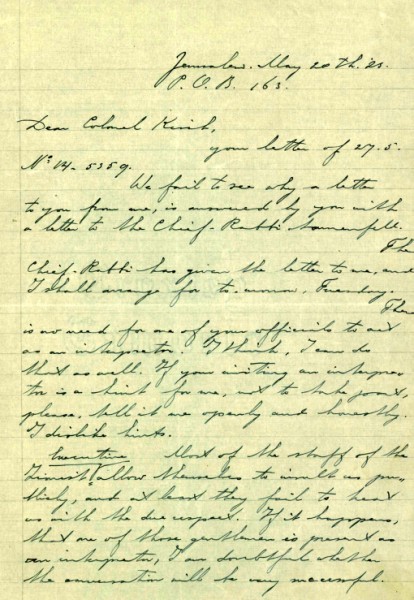 Jerusalem. May 20th. 23.
P. O. B. 163.
Dear Colonel Kisch,
your letter of 27.5.
No 14-5359.
We fail to see why a letter
to you from me, is answered by you with
a letter to the Chief-Rabbi Sonnenfeld.
The
Chief-Rabbi has given the letter to me, and
I shall arrange for to-morrow, Tuesday.
There
is no need for one of your officials to act
as an interpreter. I think, I can do
that as well. If you inviting an interpre-
tor is a hint for me, not to take part,
please, tell it me openly and honestly.
I dislike hints.
Executive Most of the staff of the
Zionist allow themselves to insult us pu-
blicly, and at least they fail to treat
us with the due respect. If it happens,
that one of those gentlemen is present as
an interpretor, I am doubtful whether
the conversation will be very successful.